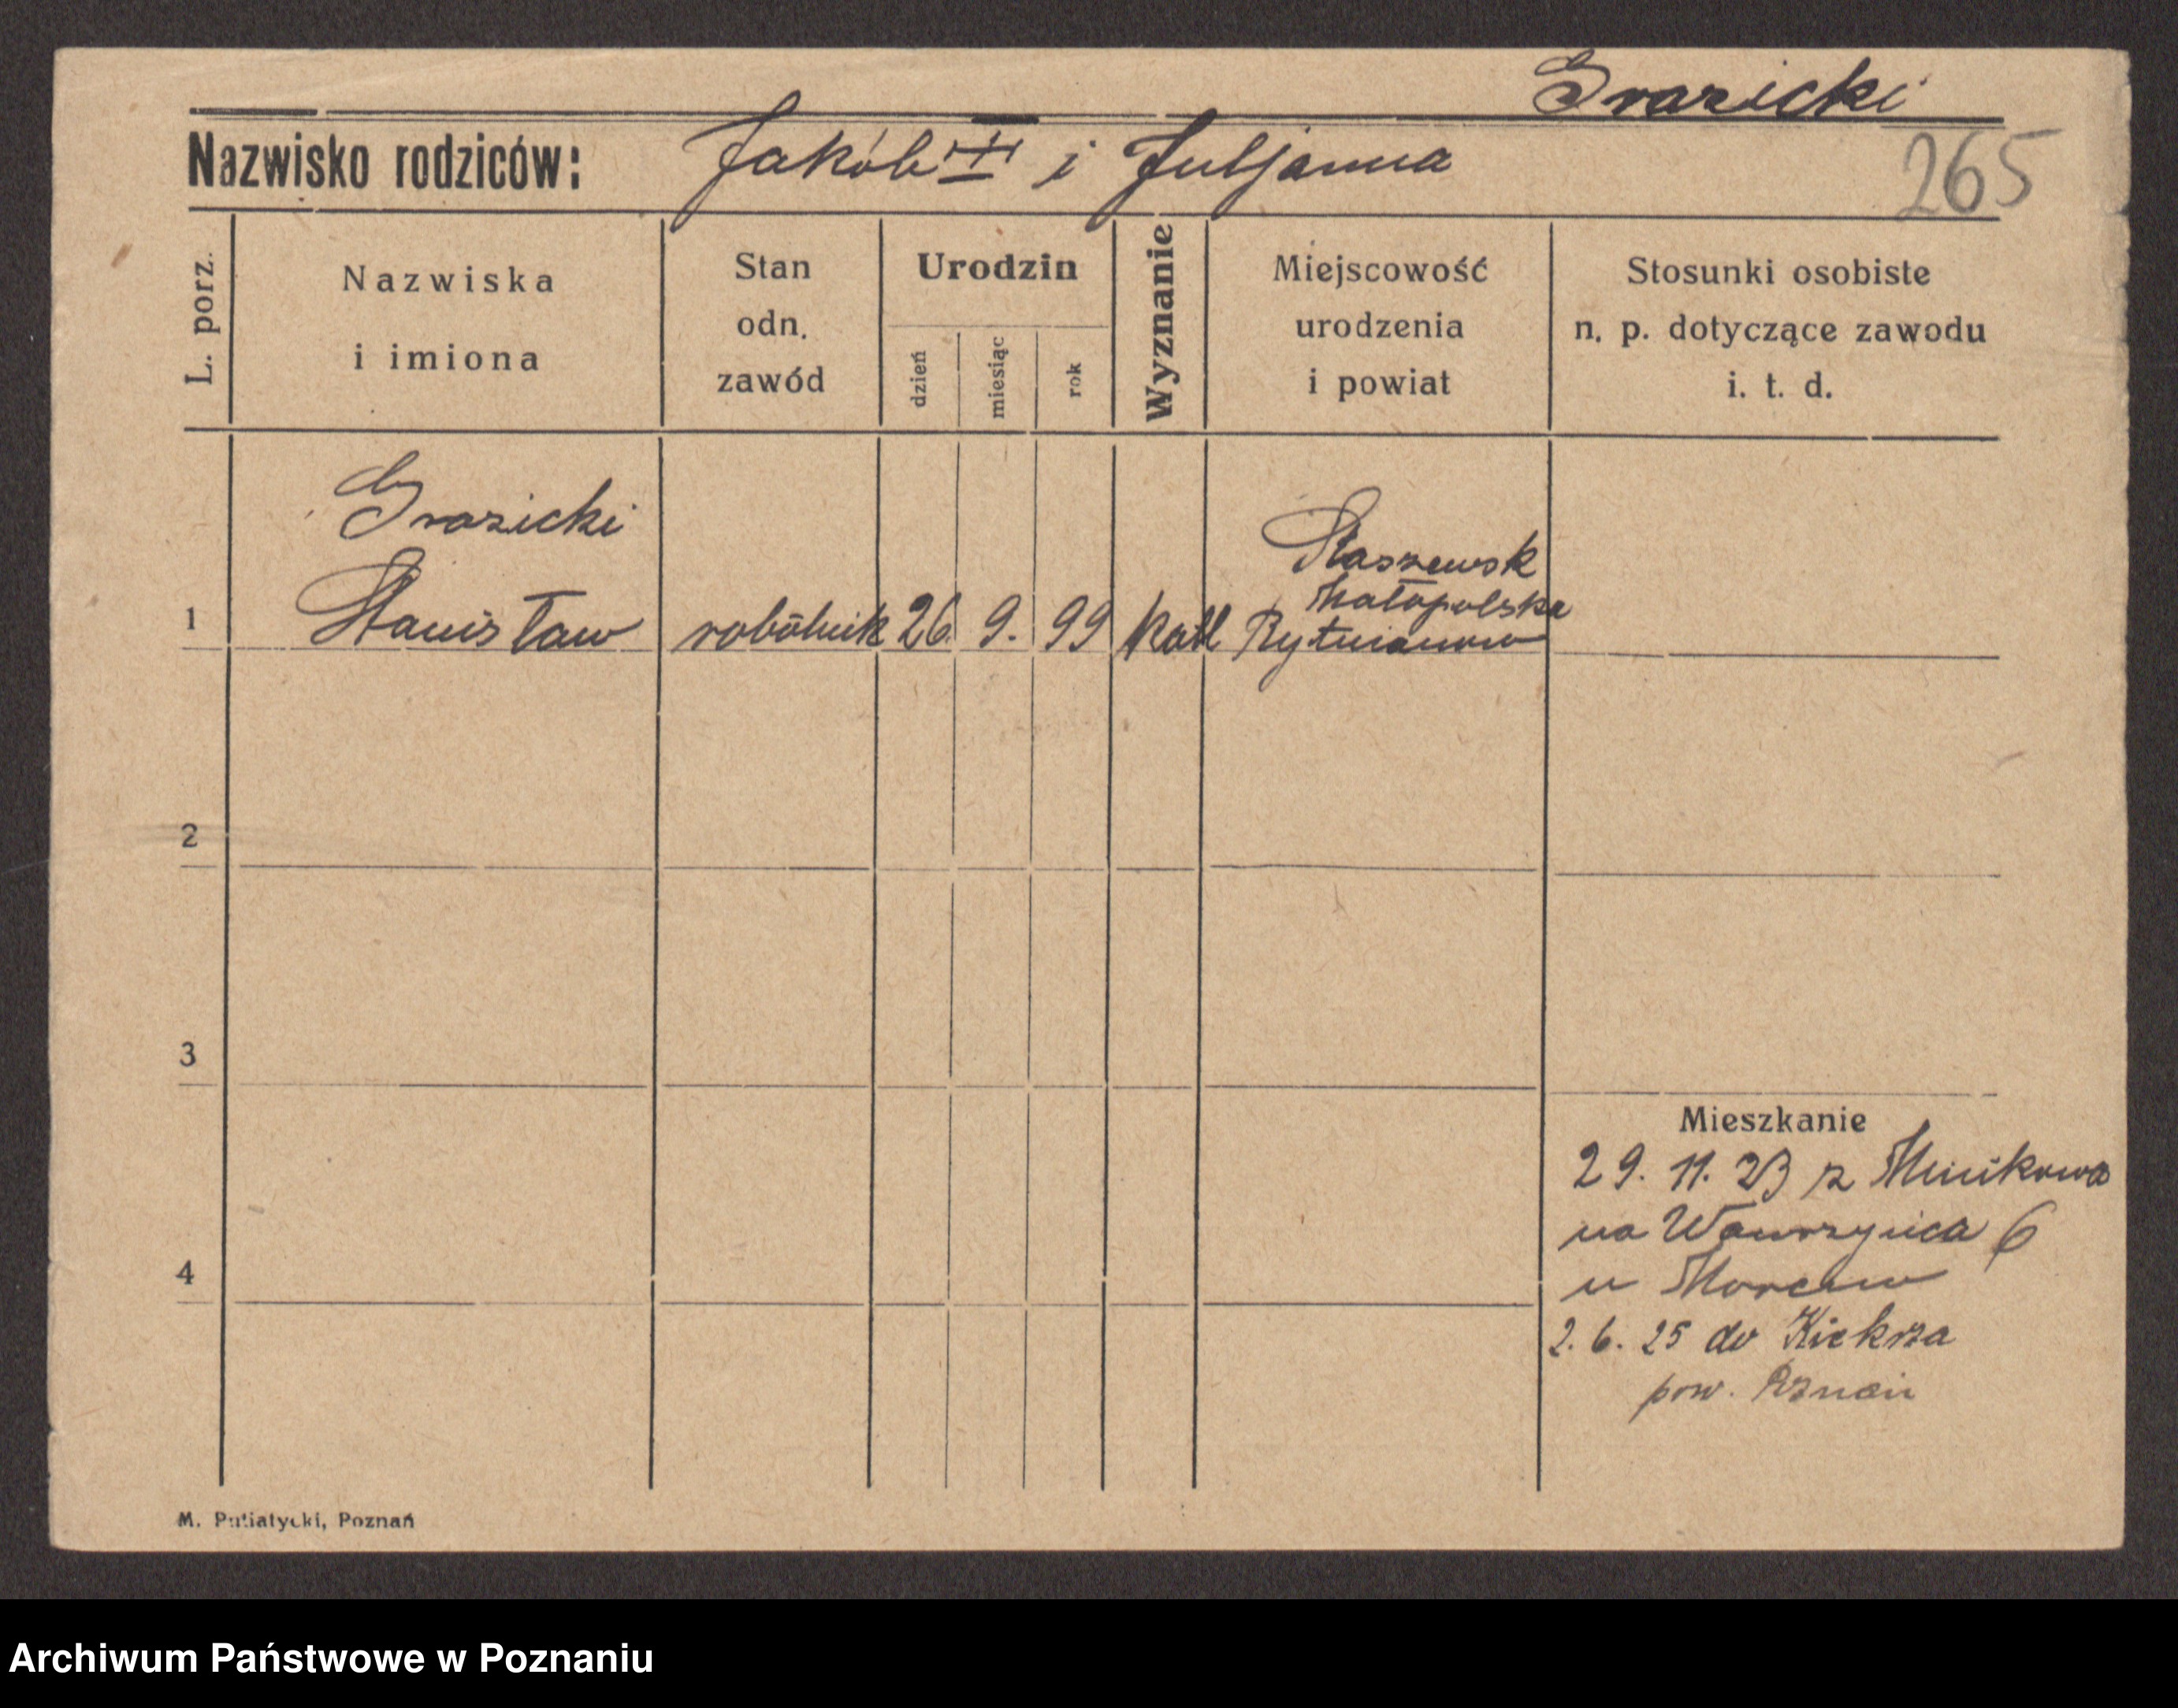 Grazicki
Nazwisko rodziców: Jakób i Juljanna
265
L. porz.
Nazwiska
i imiona
Stan
odn.
zawód
Urodzin
dzień
miesiąc
rok
Wyznanie
Miejscowość
urodzenia
i powiat
Stosunki osobiste
n. p. dotyczące zawodu
i. t. d.
Grazicki
Staszewsk
Małopolska
1 Stanisław robótnik 26 9. 99 katl
2
3
Mieszkanie
29. 11. 23 z Mnikowa
na Wawrzynca 6
4
u
2. 6. 25 do Kiekrza
pow. Poznań
M. Putiatycki, Poznań
Archiwum Państwowe w Poznaniu